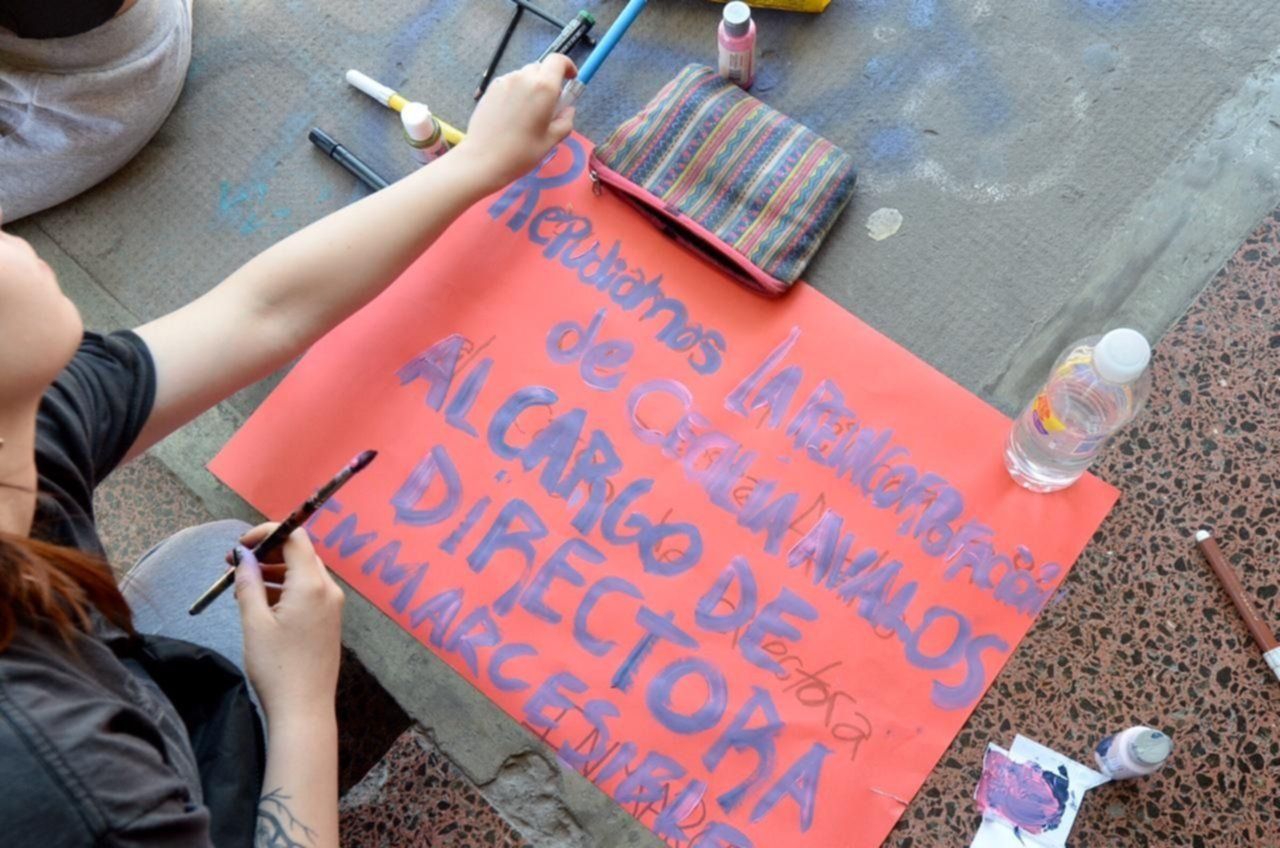 Repudiamos LA REINCORPORACIÓN
de CECILIA AVALOS
AL CARGO DE
DIRECTORA